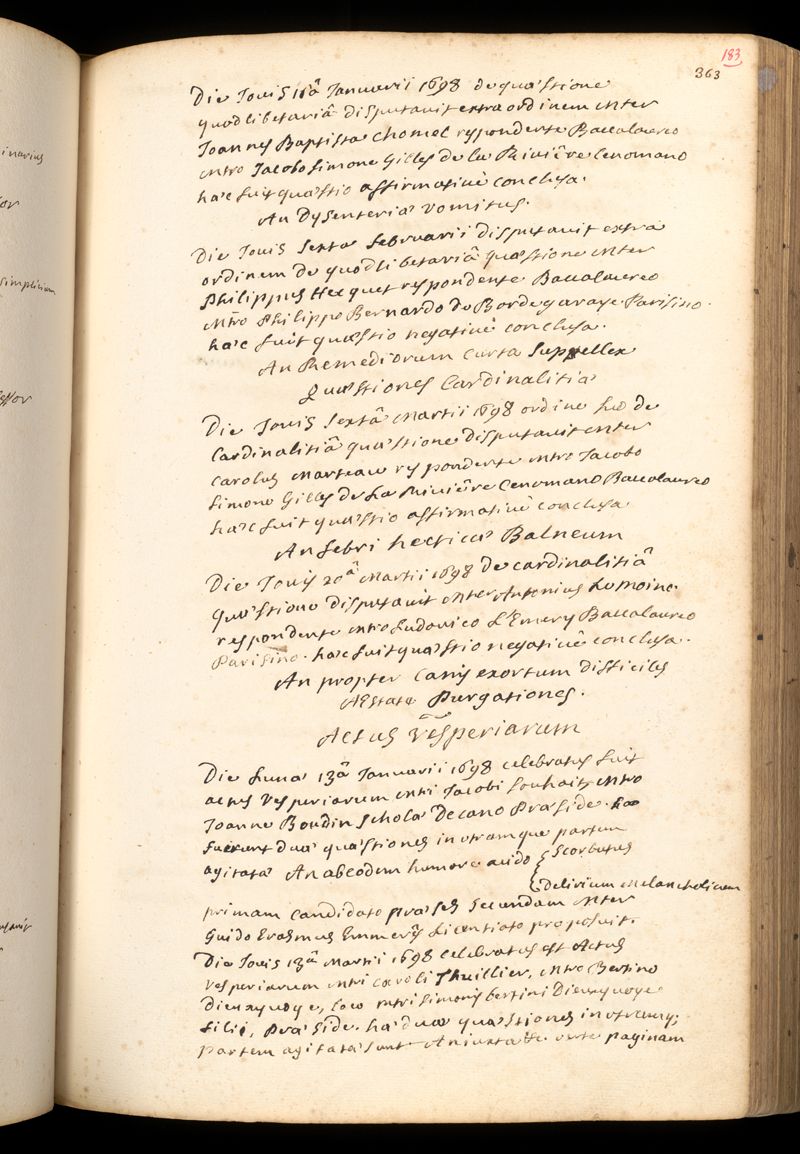 183
363
Die Jovis 16â Januarii 1698 de quæstione
quodlibetariâ disputavit extra ordinem Mter
Joannes Baptista Chomel respondente Baccalaureo
Mtro Jacobo Simone Gilles de la Rivière Cenomano
hæc fuit quæstio affirmativè conclusa.
An Dysenteriæ vomitus.
Die Jovis sexta februarii disputavit extra
ordinem de quodlibetariâ quæstione Mter
Philippus Hecquet respondente Baccalaureo
Mtro Philippo Bernardo de Bordegaraye Parisino.
hæc fuit quæstio negativè conclusa.
An Remediorum curta suppellex
Quæstiones Cardinalitiæ
Die Jovis sextâ Martii 1698 ordine suo de
Cardinalitiâ quæstione disputavit Mter
Carolus Marteau respondente Mtro Jacobo
Simone Gilles de La Rivière Cenomano Baccalaureo
hæc fuit quæstio affirmativè conclusa
An febri hecticæ Balneum
Die Jovis 20â Martii 1698 de cardinalitiâ
quæstione disputavit Mter Antonius Lemoine
respondente Mtro Ludovico L'Emery Baccalaureo
Parisino. hæc fuit quæstio negativè conclusa.
An propter canis exortum difficiles
Æstate Purgationes.
Actus Vesperiarum
Die Lunæ 13â Januarii 1698 celebratus fuit
actus Vesperiarum Mtri Jacobi Souhait, Mtro
Joanne Boudin Scholæ Decano Præside.
fuerunt duæ quæstiones in utramque partem
agitatæ An ab eodem humore acido { Scorbutus
{ Delirium Melancholicum
primam candidato præses secundam Mter
Guido Erasmus Emmerez Licentiato proposuit.
Die Jovis 13â Martii 1698 celebratus est Actus
vesperiarum Mtri Caroli Thuillier, Mtro Bertino
Dieuxyvoye, loco Mtri Simonis bertini Dieuxyvoye
filii, Præside. hæ duæ quæstiones in utramq;
partem agitatæ sunt An juxta &c. verte paginam